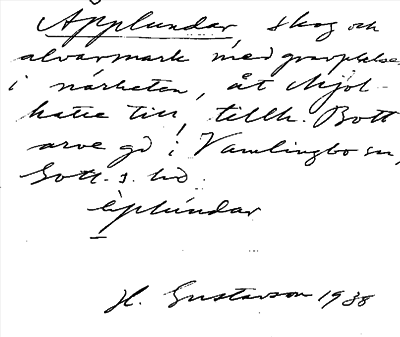 Äpplundar, skog och
alvarmark med gravplatser
i närheten, åt Mjöl-
hatte till, tillh. Bott
arve gd i Vamlingbo sn,
Gotl. s. hd.
äplúndar
H. Gustavson 1938